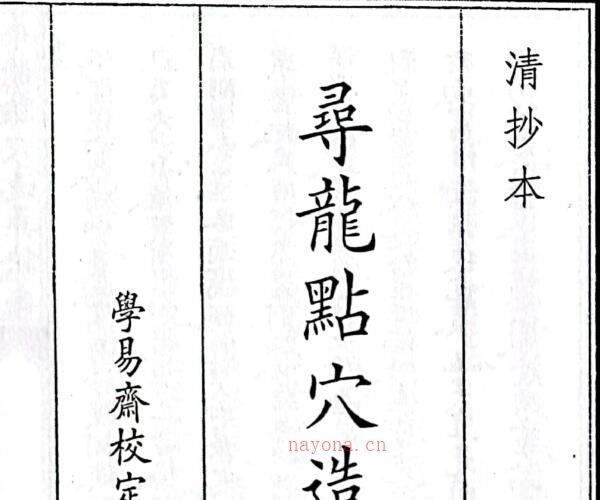 清抄本
尋龍點穴造
學易齋校定
nayona.cn